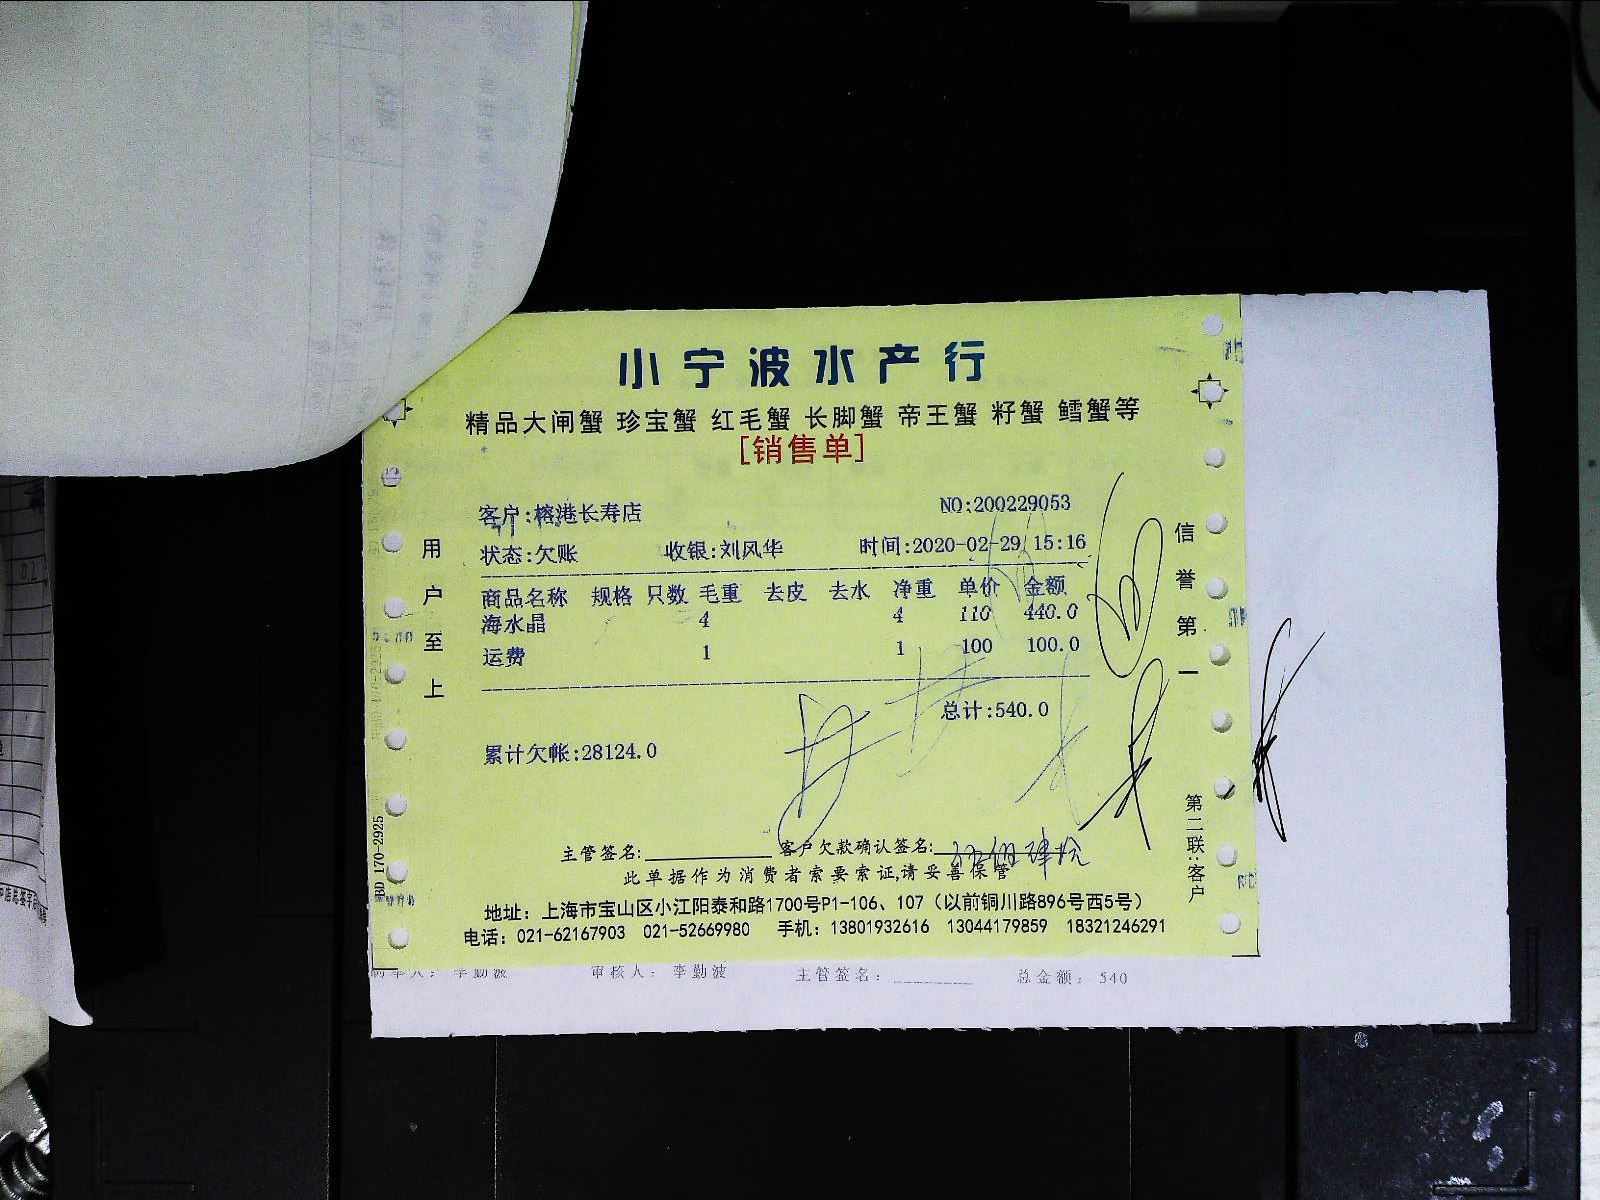 小宁波水产行
精品大闸蟹 珍宝蟹 红毛蟹 长脚蟹 帝王蟹 籽蟹 鳕蟹等
[销售单]
客户:榕港长寿店 NO:200229053
状态:欠账 收银:刘风华 时间:2020-02-29 15:16
商品名称 规格 只数 毛重 去皮 去水 净重 单价 金额
海水晶 4 4 110 440.0
运费 1 1 100 100.0
总计:540.0
累计欠帐:28124.0
主管签名: 客户欠款确认签名: 伍佰肆拾
此单据作为消费者索要索证,请妥善保管
地址：上海市宝山区小江阳泰和路1700号P1-106、107（以前铜川路896号西5号）
电话：021-62167903 021-52669980 手机：13801932616 13044179859 18321246291
用户至上
信誉第一
第二联:客户
BD 170-2925
制单人：李勤波 审核人：李勤波 主管签名： 总金额：540